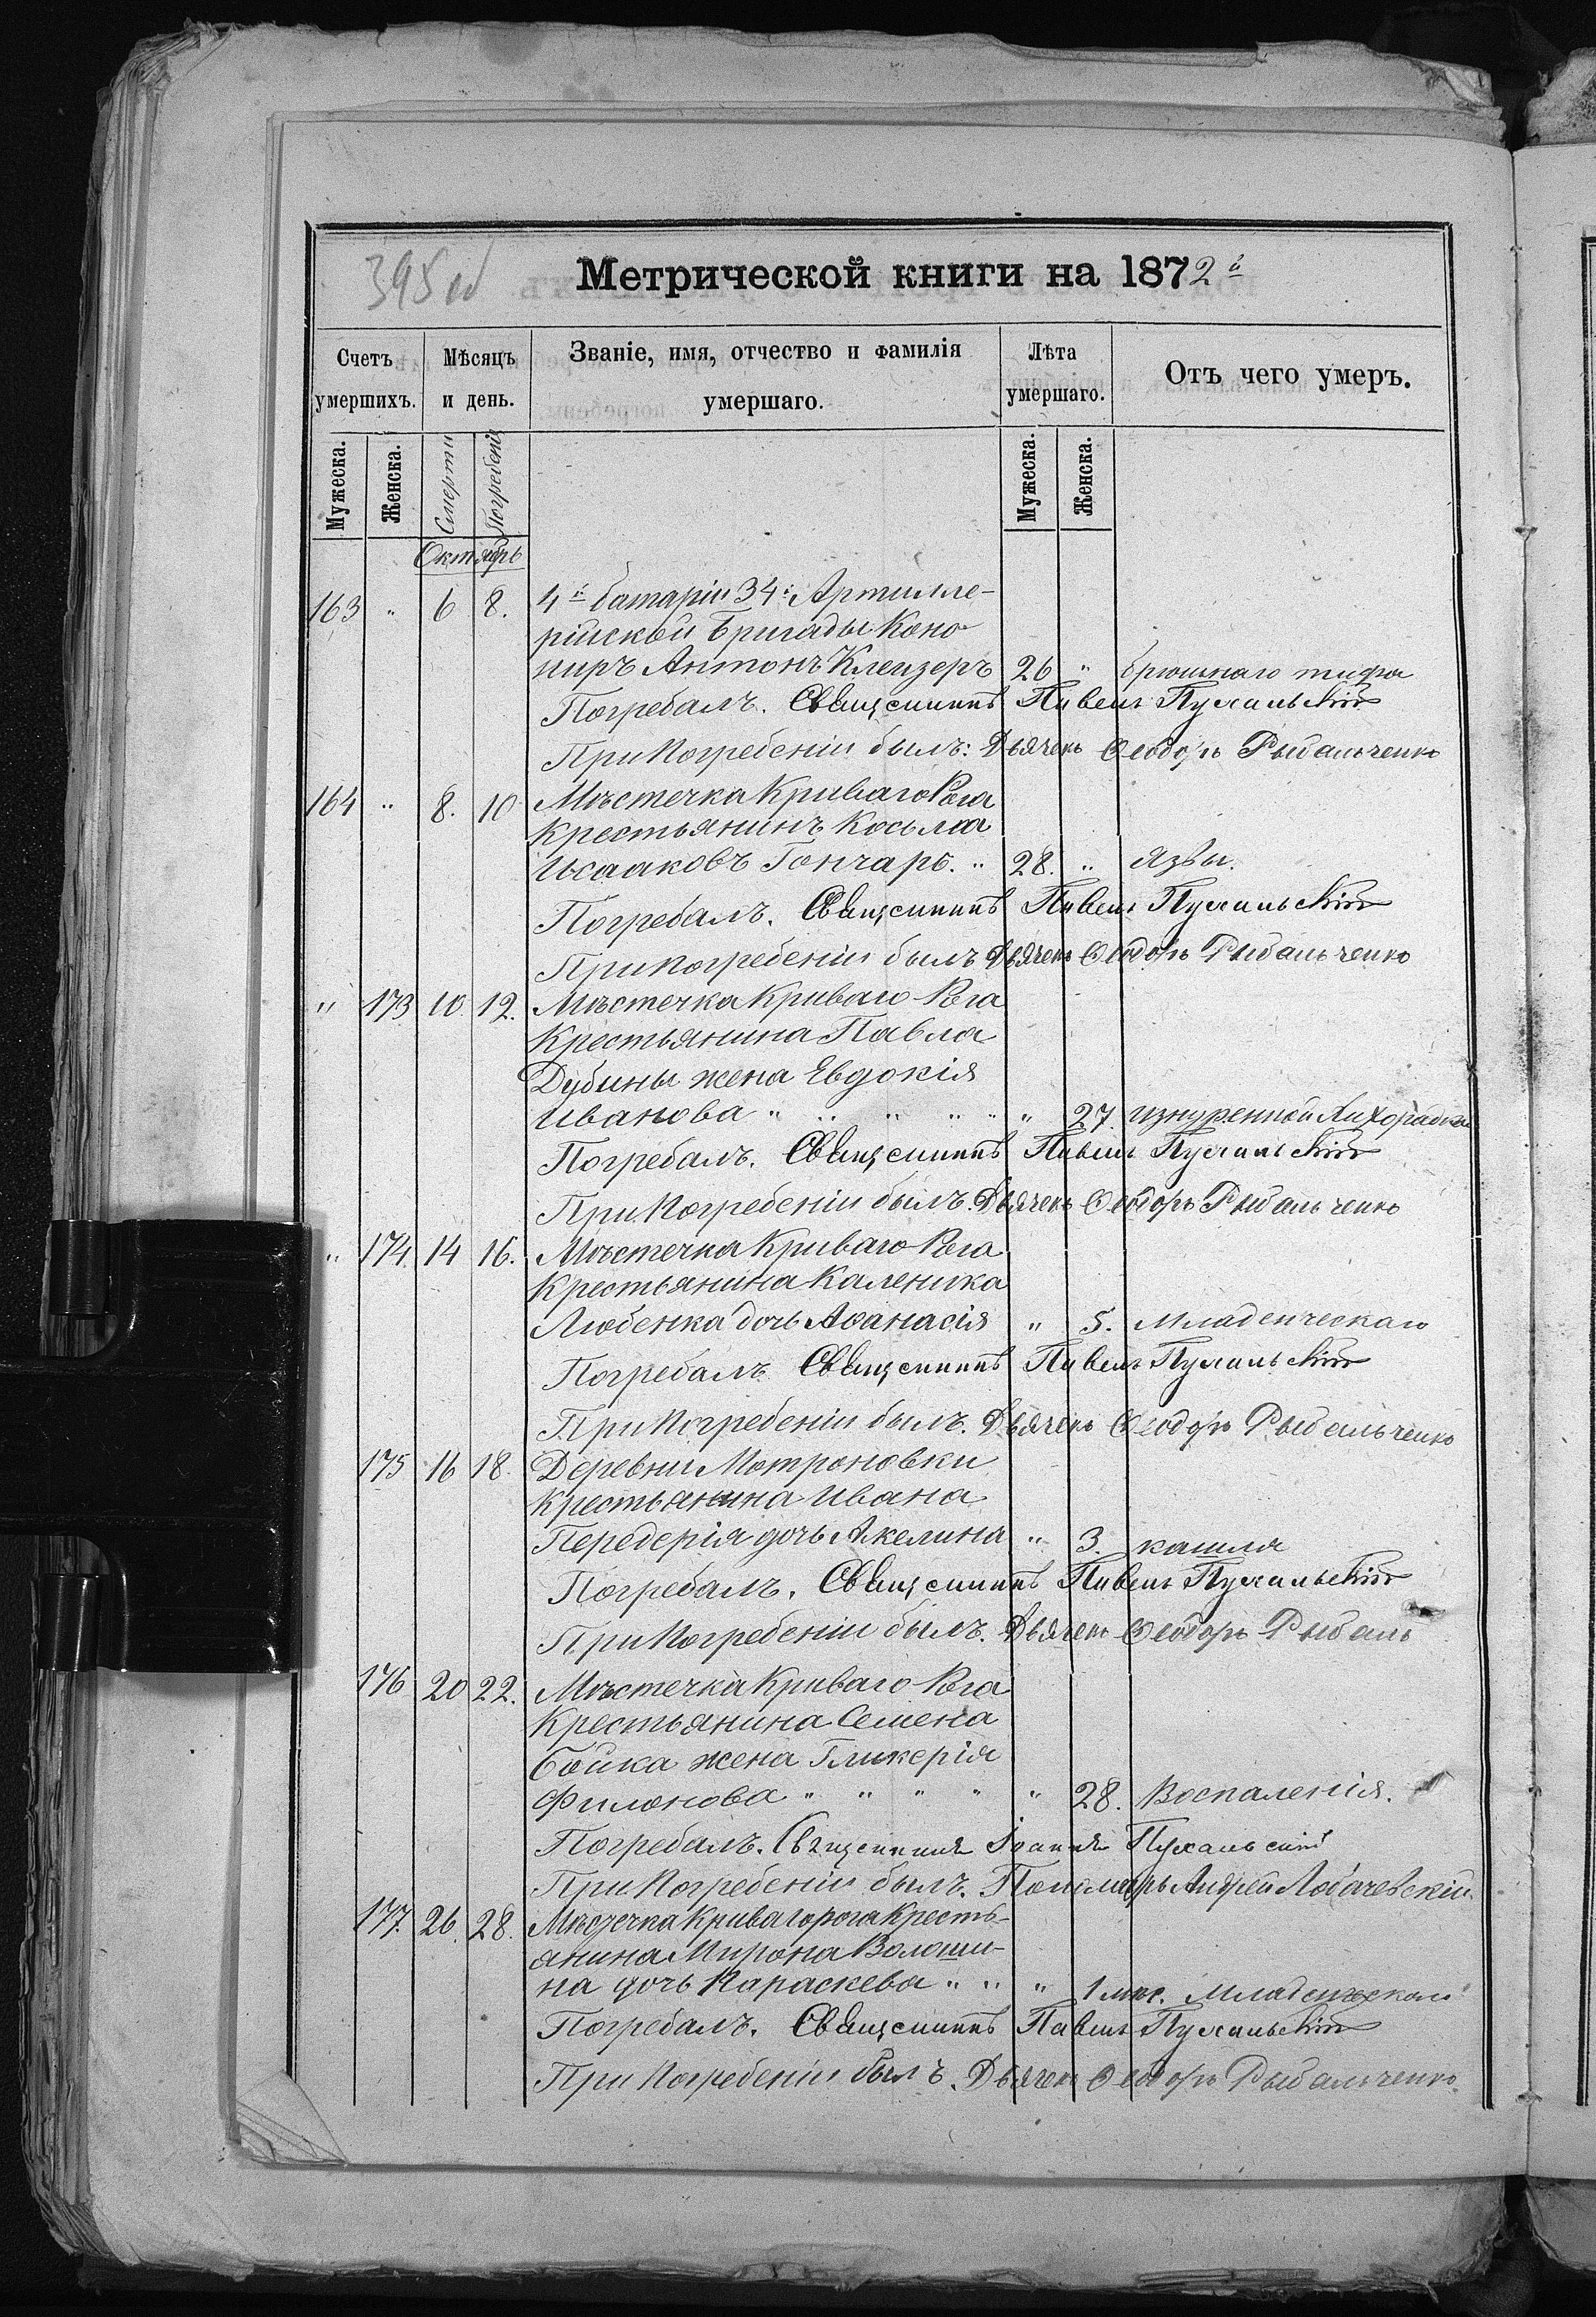 395 об
Метрической книги на 1872й
Счетъ умершихъ. Мѣсяцъ и день. Званіе, имя, отчество и фамилія умершаго. Лѣта умершаго. Отъ чего умеръ.
Мужеска. Женска. Смерти Погребенія Мужеска. Женска.
Октябрь
163 " 6 8. 4й батаріи 34й Артилле-
рійской Бригады Кано
ниръ Антонъ Клейзеръ 26 " брюшнаго тифа
Погребалъ. Священникъ Павелъ Пухальскій
При погребеніи былъ: Дьячекъ Ѳеодоръ Рыбальченко
164 " 8. 10 Мѣстечка Криваго Рога
Крестьянинъ Косьма
Исааковъ Гончаръ. " 28. " язвы.
Погребалъ. Священникъ Павелъ Пухальскій
При погребеніи былъ Дьячекъ Ѳеодоръ Рыбальченко
" 173 10. 12. Мѣстечка Криваго Рога
Крестьянина Павла
Дубины жена Евдокія
Иванова " " " " " " 27. изнуренной лихорадки
Погребалъ. Священникъ Павелъ Пухальскій
При погребеніи былъ. Дьячекъ Ѳеодоръ Рыбальченко
" 174. 14 16. Мѣстечка Криваго Рога
Крестьянина Каленика
Любенка дочь Аѳанасія " 5. Младенческаго
Погребалъ Священникъ Павелъ Пухальскій
При погребеніи былъ. Дьячекъ Ѳеодоръ Рыбальченко
175 16 18. Деревни Мотроновки
Крестьянина Ивана
Передерія дочь Акелина " 3. кашля
Погребалъ. Священникъ Павелъ Пухальскій
При погребеніи былъ. Дьячекъ Ѳеодоръ Рыбаль
176 20 22. Мѣстечка Криваго Рога
Крестьянина Семена
Бойка жена Гликерія
Филонова " " " " " 28. Воспаленія.
Погребалъ. Священникъ Іоаннъ Пухальскій
При погребеніи былъ. Пономарь Андрей Лобачевскій
177. 26. 28. Мѣстечка Криваго рога Кресть-
янина Мирона Волоши-
на дочь Параскева " " " 1 мѣс. Младенческаго
Погребалъ. Священникъ Павелъ Пухальскій
При погребеніи былъ. Дьячекъ Ѳеодоръ Рыбальченко